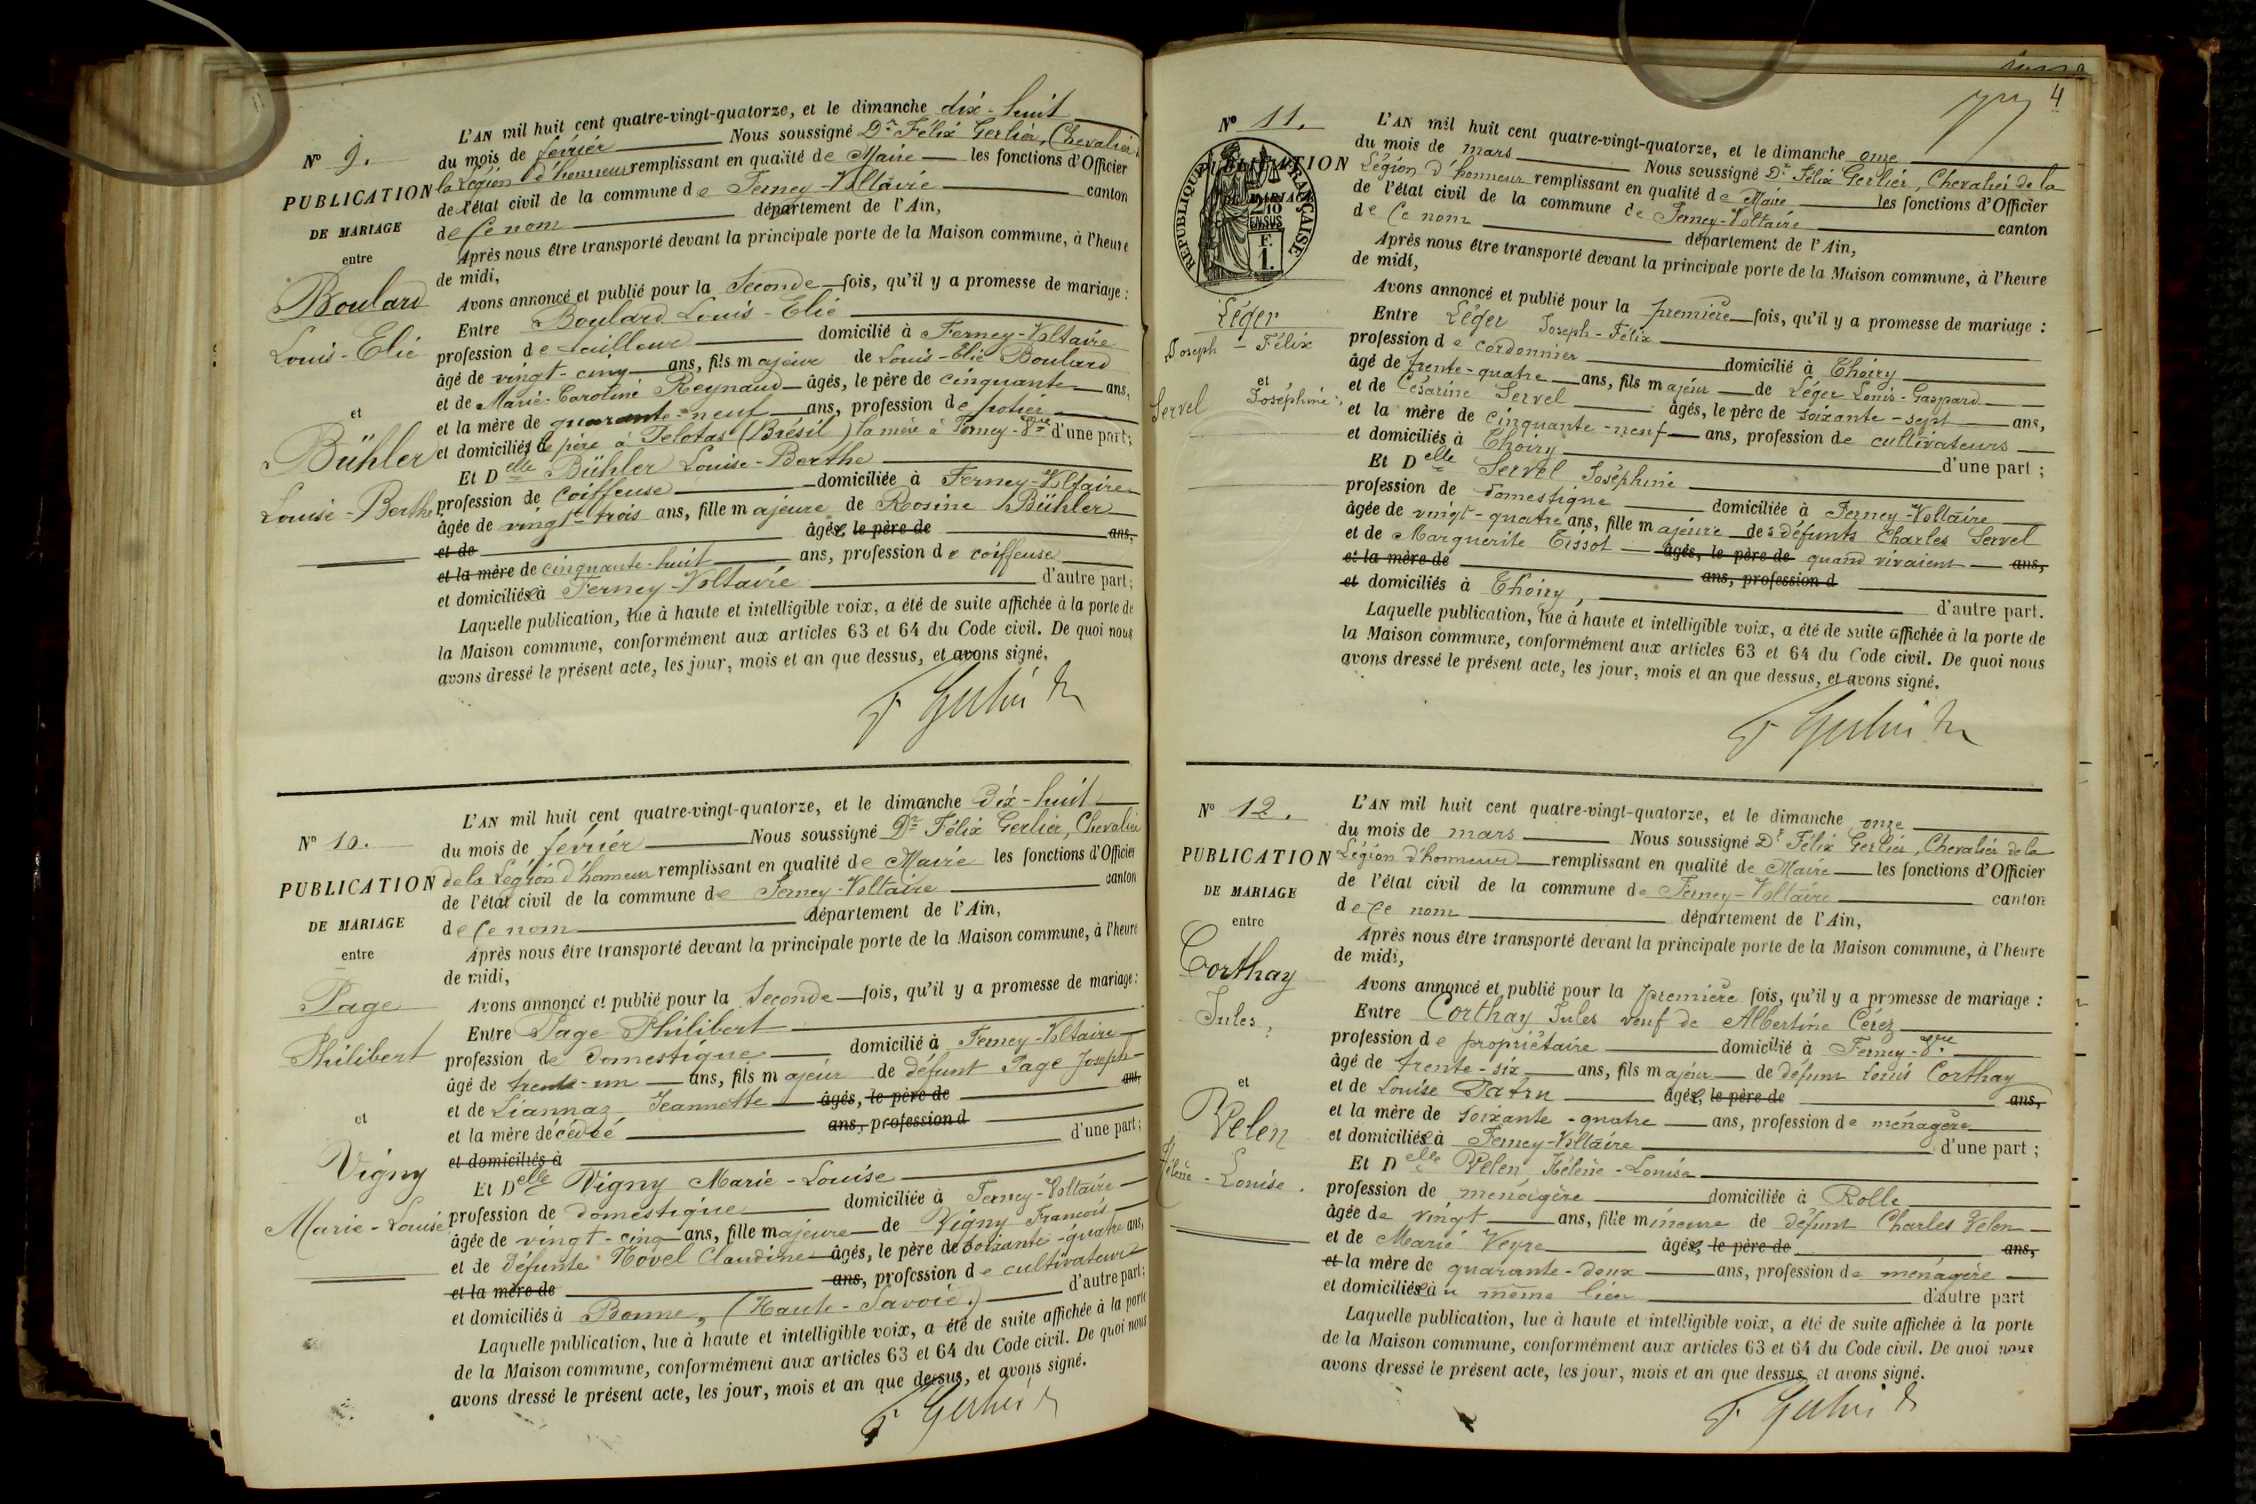 L'AN mil huit cent quatre-vingt-quatorze, et le dimanche dix-huit
N° 9.
du mois de février Nous soussigné Dr Félix Gerlier, Chevalier
PUBLICATION
la Légion d'honneur remplissant en qualité de Maire les fonctions d'Officier
de l'état civil de la commune de Ferney-Voltaire canton
DE MARIAGE
de Ce nom département de l'Ain,
entre
Après nous être transporté devant la principale porte de la Maison commune, à l'heure
de midi,
Boulard
Avons annoncé et publié pour la Seconde fois, qu'il y a promesse de mariage :
Entre Boulard Louis-Elie
Louis-Elie
profession de tailleur domicilié à Ferney-Voltaire
âgé de vingt-cinq ans, fils majeur de Louis-Elie Boulard
et de Marie-Caroline Reynaud âgés, le père de cinquante ans,
et
et la mère de quarante-neuf ans, profession de potier
Bühler
et domiciliés le père à Pelotas (Brésil) la mère à Ferney-Vre d'une part ;
Et Delle Bühler Louise-Berthe
Louise-Berthe
profession de coiffeuse domiciliée à Ferney-Voltaire
âgée de vingt-trois ans, fille majeure de Rosine Bühler
et de âgée, le père de ans,
et la mère de cinquante-huit ans, profession de coiffeuse
et domiciliée à Ferney-Voltaire d'autre part ;
Laquelle publication, lue à haute et intelligible voix, a été de suite affichée à la porte de
la Maison commune, conformément aux articles 63 et 64 du Code civil. De quoi nous
avons dressé le présent acte, les jour, mois et an que dessus, et avons signé.
F Gerlier Dr
L'AN mil huit cent quatre-vingt-quatorze, et le dimanche Dix-huit
N° 10.
du mois de février Nous soussigné Dr Félix Gerlier, Chevalier
PUBLICATION
de la Légion d'honneur remplissant en qualité de Maire les fonctions d'Officier
de l'état civil de la commune de Ferney-Voltaire canton
DE MARIAGE
de Ce nom département de l'Ain,
entre
Après nous être transporté devant la principale porte de la Maison commune, à l'heure
de midi,
Page
Avons annoncé et publié pour la Seconde fois, qu'il y a promesse de mariage :
Entre Page Philibert
Philibert
profession de domestique domicilié à Ferney-Voltaire
âgé de trente-un ans, fils majeur de défunt Page Joseph
et de Liannaz Jeannette âgés, le père de ans,
et
et la mère décédé ans, profession d
et domiciliés à d'une part ;
Vigny
Et Delle Vigny Marie-Louise
Marie-Louise
profession de domestique domiciliée à Ferney-Voltaire
âgée de vingt-cinq ans, fille majeure de Vigny François
et de défunte Novel Claudine âgés, le père de soixante-quatre ans,
et la mère de ans, profession de cultivateur
et domiciliés à Bonne, (Haute-Savoie.) d'autre part ;
Laquelle publication, lue à haute et intelligible voix, a été de suite affichée à la porte
de la Maison commune, conformément aux articles 63 et 64 du Code civil. De quoi nous
avons dressé le présent acte, les jour, mois et an que dessus, et avons signé.
F Gerlier Dr
4
N° 11.
L'AN mil huit cent quatre-vingt-quatorze, et le dimanche onze
du mois de mars Nous soussigné Dr Félix Gerlier, Chevalier de la
PUBLICATION
Légion d'honneur remplissant en qualité de Maire les fonctions d'Officier
de l'état civil de la commune de Ferney-Voltaire canton
DE MARIAGE
RÉPUBLIQUE FRANÇAISE
2/10
EN SUS
F.
1.
de Ce nom département de l'Ain,
Après nous être transporté devant la principale porte de la Maison commune, à l'heure
de midi,
Avons annoncé et publié pour la première fois, qu'il y a promesse de mariage :
Léger
Entre Léger Joseph-Félix
Joseph-Félix
profession de cordonnier domicilié à Thoiry
âgé de trente-quatre ans, fils majeur de Léger Louis-Gaspard
et
et de Césarine Servel âgés, le père de soixante-sept ans,
Servel Joséphine
et la mère de cinquante-neuf ans, profession de cultivateurs
et domiciliés à Thoiry d'une part ;
Et Delle Servel Joséphine
profession de domestique domiciliée à Ferney-Voltaire
âgée de vingt-quatre ans, fille majeure des défunts Charles Servel
et de Marguerite Tissot âgés, le père de quand vivaient ans,
et la mère de ans, profession d
et domiciliés à Thoiry, d'autre part.
Laquelle publication, lue à haute et intelligible voix, a été de suite affichée à la porte de
la Maison commune, conformément aux articles 63 et 64 du Code civil. De quoi nous
avons dressé le présent acte, les jour, mois et an que dessus, et avons signé.
F Gerlier Dr
N° 12.
L'AN mil huit cent quatre-vingt-quatorze, et le dimanche onze
du mois de mars Nous soussigné Dr Félix Gerlier, Chevalier de la
PUBLICATION
Légion d'honneur remplissant en qualité de Maire les fonctions d'Officier
de l'état civil de la commune de Ferney-Voltaire canton
DE MARIAGE
de Ce nom département de l'Ain,
entre
Après nous être transporté devant la principale porte de la Maison commune, à l'heure
de midi,
Corthay
Avons annoncé et publié pour la première fois, qu'il y a promesse de mariage :
Jules,
Entre Corthay Jules veuf de Albertine Cérez
profession de propriétaire domicilié à Ferney-Vre
âgé de trente-six ans, fils majeur de défunt Louis Corthay
et
et de Louise Patru âgée, le père de ans,
Velen
et la mère de soixante-quatre ans, profession de ménagère
et domiciliée à Ferney-Voltaire d'une part ;
Hélène-Louise.
Et Delle Velen, Hélène-Louise
profession de ménagère domiciliée à Rolle
âgée de vingt ans, fille mineure de défunt Charles Velen
et de Marie Veyre âgée, le père de ans,
et la mère de quarante-deux ans, profession de ménagère
et domiciliée au même lieu d'autre part
Laquelle publication, lue à haute et intelligible voix, a été de suite affichée à la porte
de la Maison commune, conformément aux articles 63 et 64 du Code civil. De quoi nous
avons dressé le présent acte, les jour, mois et an que dessus, et avons signé.
F Gerlier Dr